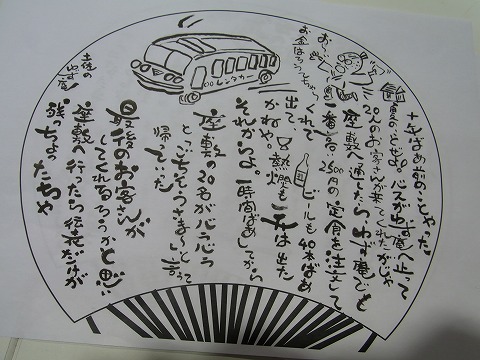 十年ばぁ前のことやった
夏のことぜよ。バスがゆず庵へ止って
20人のお客さんが来てくれたがじゃ
座敷へ通したら、ゆず庵でも
一番高い2500円の定食を注文して
くれて ビールも40本ばぁ
出て、又熱燗も
出た
かねや。
それからよ。一時間ばぁしてから
座敷の20名がバラバラ
とごちそうさま〜と言うて
帰っていた
最後のお客さんが
してくれるろうかと思い
座敷へ行たら伝表だけが
残っちょったわや
お金はろう
レンタカー
土佐の
ゆず庵